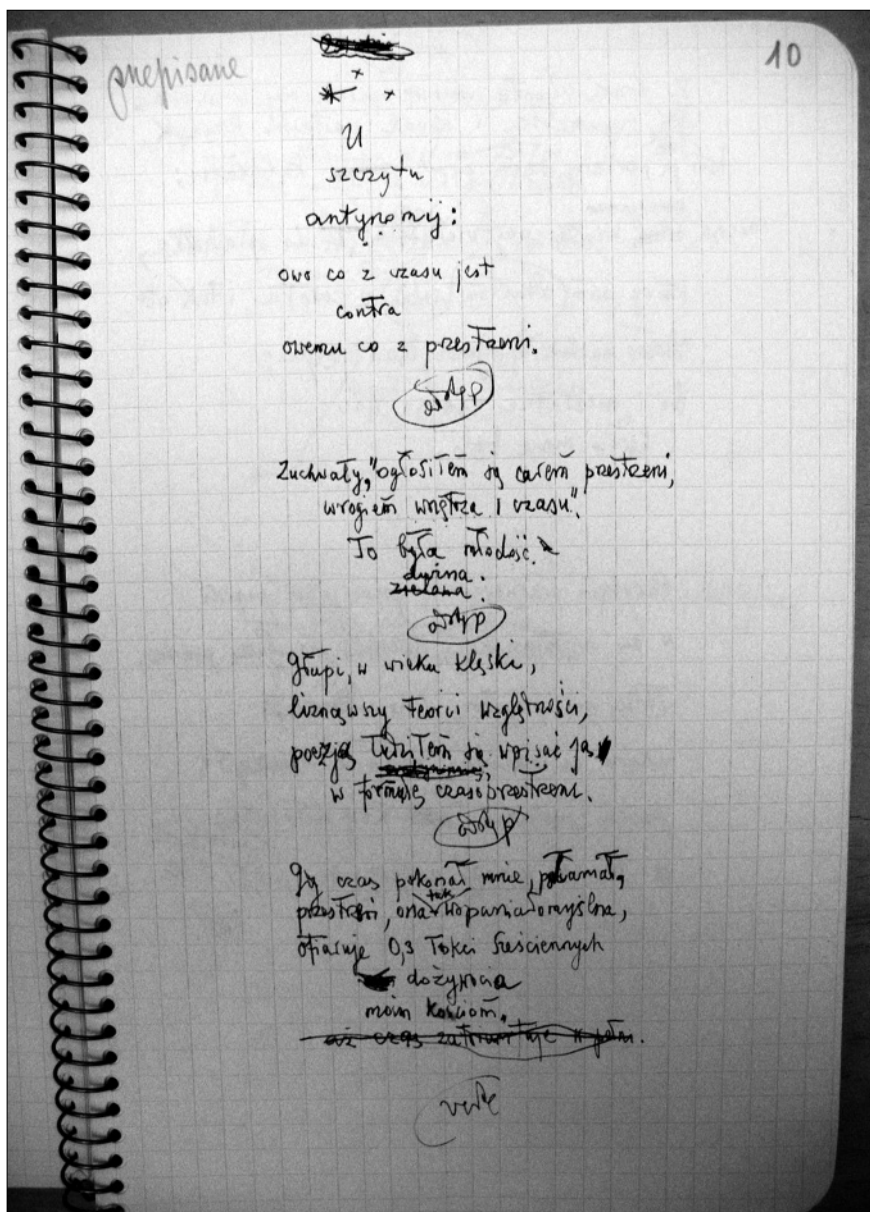 przepisane
10
U
szczytu
antynomij:
owo co z czasu jest
contra
owemu co z przestrzeni.
odstęp
Zuchwały, "ogłosiłem się carem przestrzeni,
wrogiem wnętrza i czasu".
To była młodość
durna.
zielona.
odstęp
Głupi, w wieku klęski,
liznąwszy teorii względności,
poezją łudziłem się wpisać ją
w formułę czasoprzestrzeni.
odstęp
Gdy czas pokonał mnie, połamał,
tak
przestrzeń, ona wspaniałomyślna,
ofiaruje 0,3 łokci sześciennych
dożywocia
moim kościom.
aż czas zatriumfuje w pełni.
verte